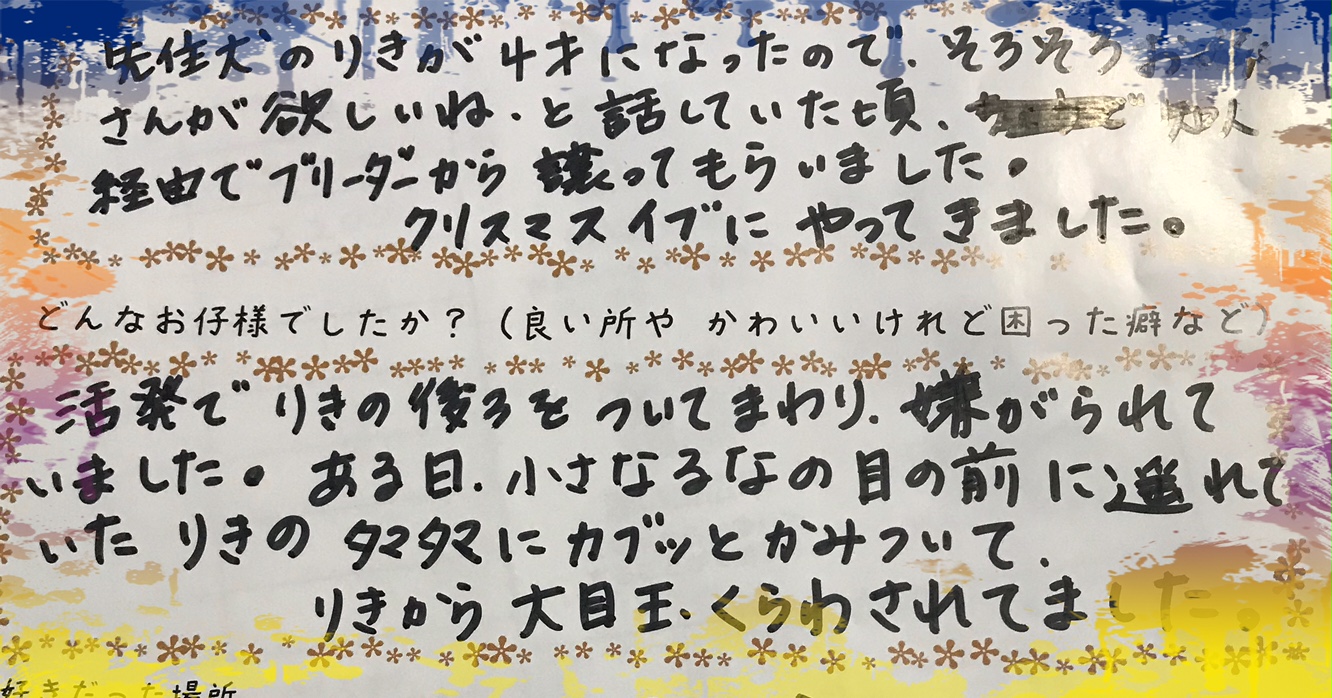 先住犬のりきが4才になったので、そろそろお
さんが欲しいね.と話していた頃、知人
経由でブリーダーから譲ってもらいました。
クリスマスイブにやってきました。
どんなお仔様でしたか？（良い所や かわいいけれど困った癖など）
活発でりきの後ろをついてまわり、嫌がられて
いました。ある日、小さなるなの目の前に遥れて
いたりきのタマタマにカブッとかみついて、
りきから大目玉くらわされてました。
好きだった場所